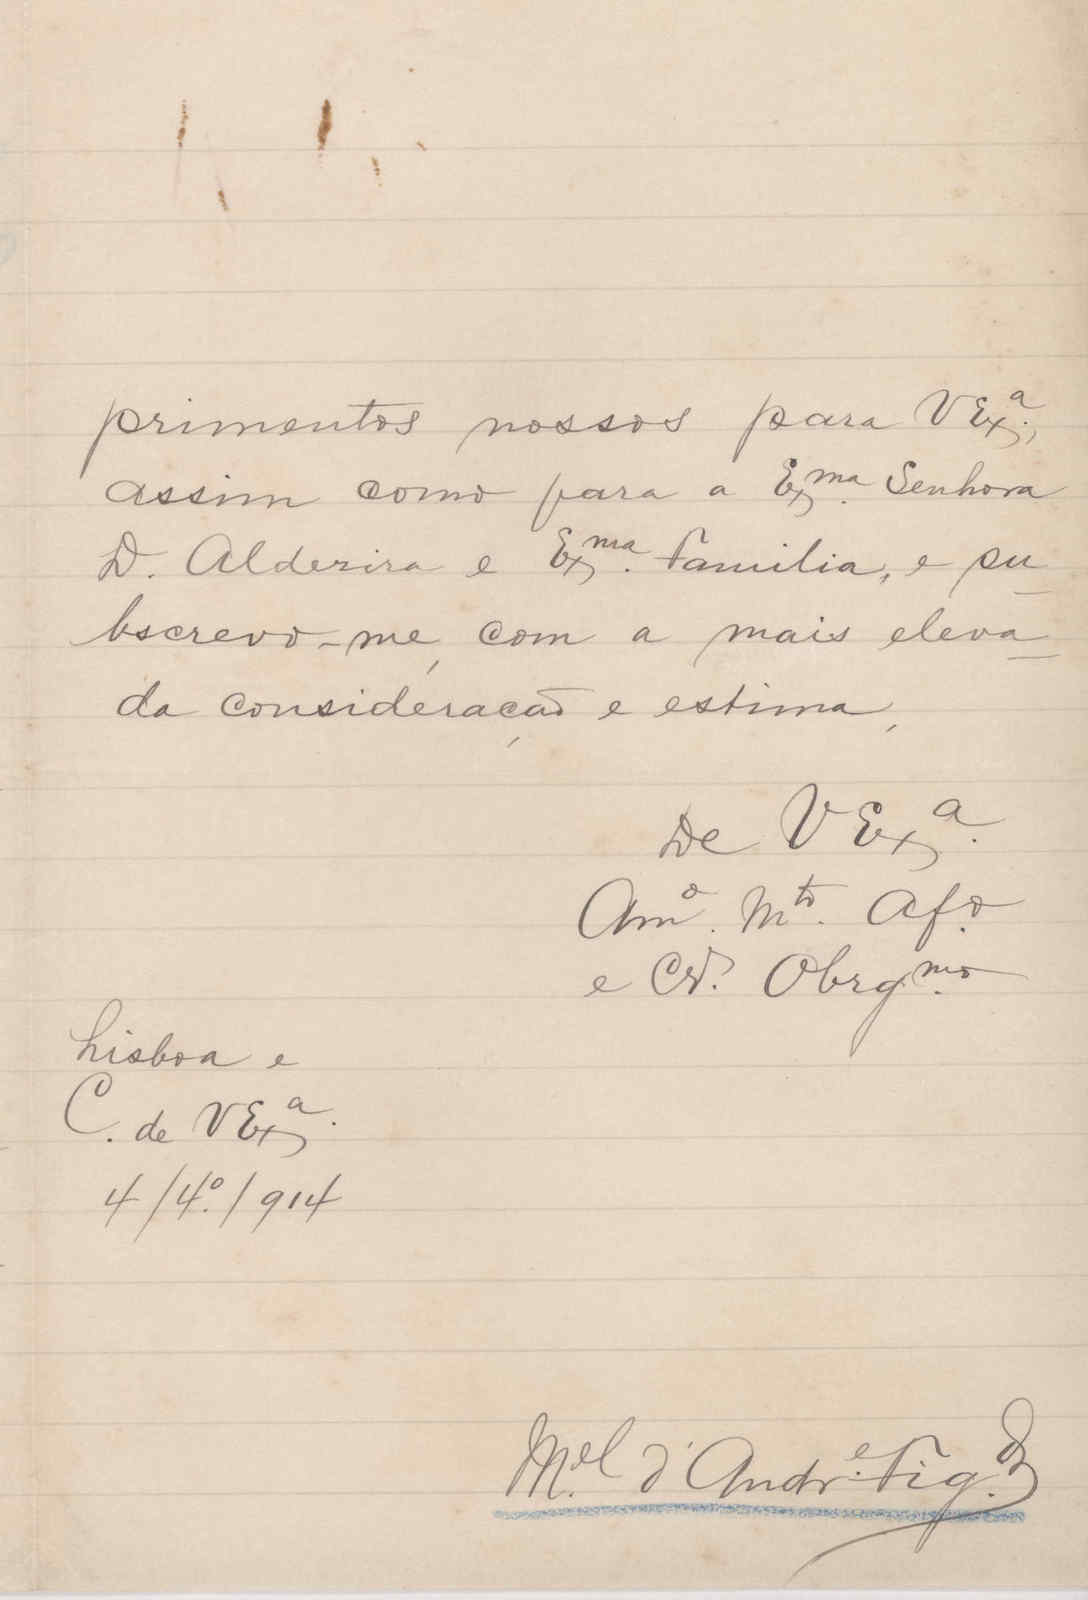 primentos nossos para V Exª.,
assim como para a Exma. Senhora
D. Alderira e Exma. Familia, e su_
bscrevo-me, com a mais eleva_
da consideração e estima,
De V Exª.
Amº. Mto. Afº.
e Cr. Obrgmo.
Lisboa e
C. de V Exª.
4/4º./914
M.el d'Andr.e Fig.